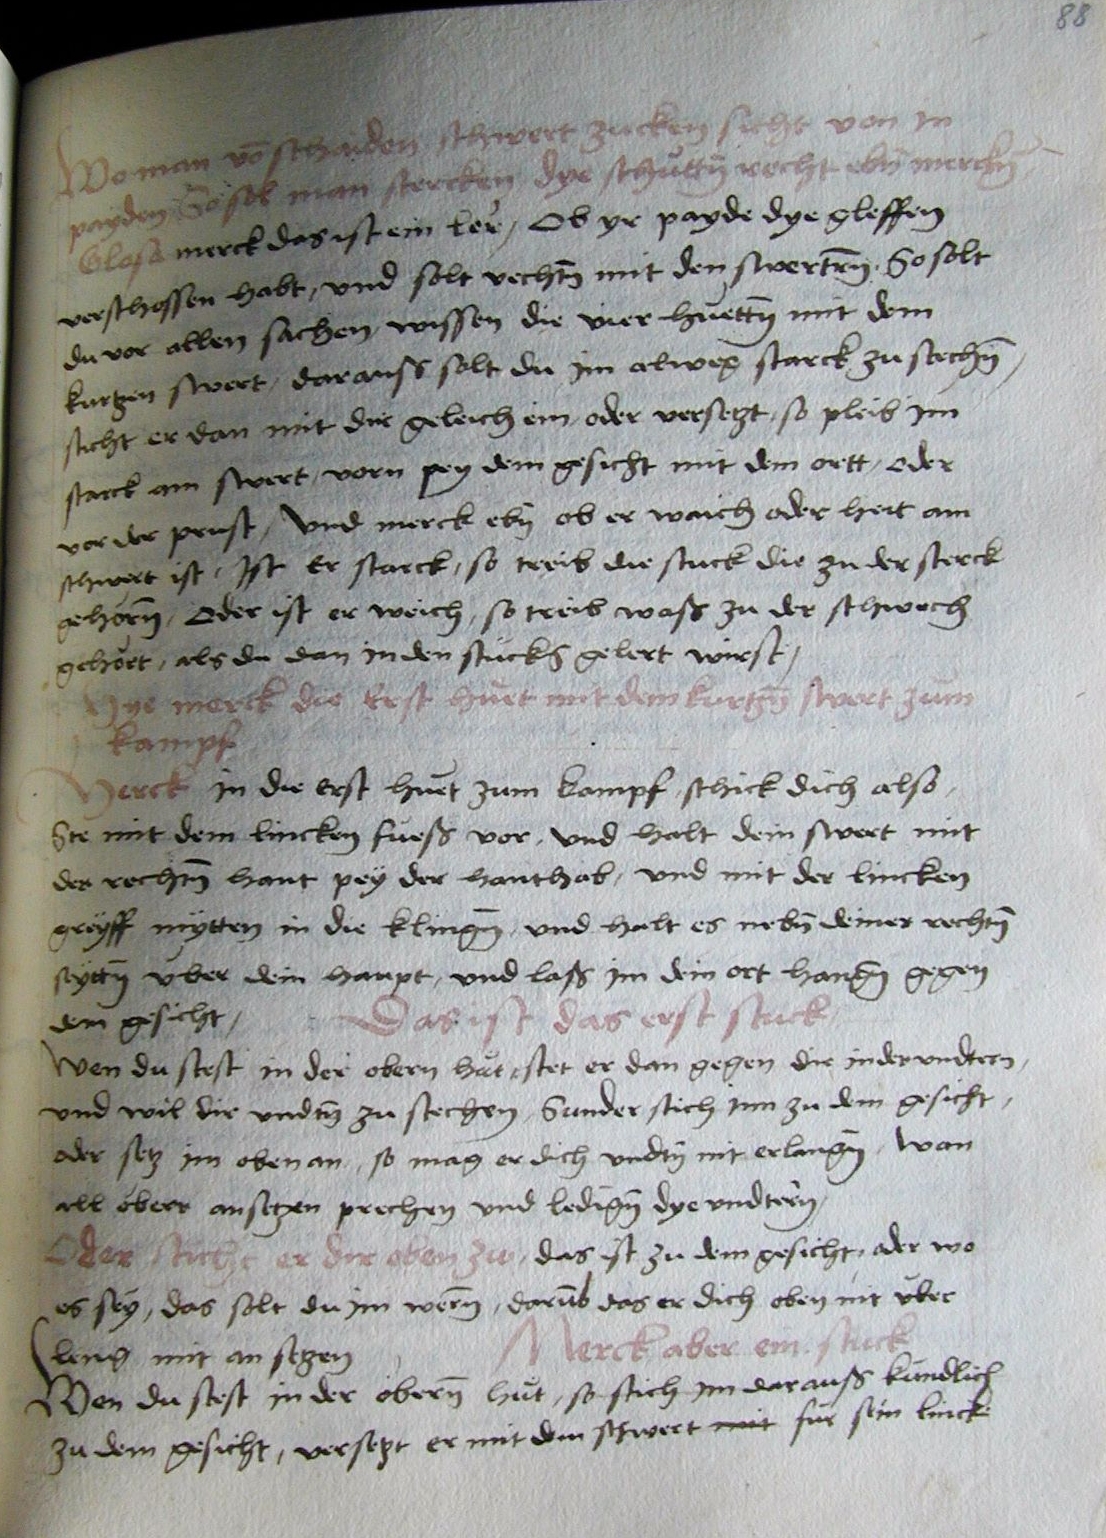 88
Wo man vo̅ schaiden schwert zucken sicht von in
payden So sol man stercken dye schuttn̅ recht ebn̅ merckn̅
Glosa merck das ist ein ler, Ob yr payde dye gleffen
verschossen habt, vnd solt vechtn̅ mit den swertern̅. So solt
du vor allen sachen wissen die vier huettn̅ mit dem
kurtzen swert, darauß solt du im alweg starck zu stechn̅,
sticht er dan mit dir geleich ein, oder versetzt, so pleib im
starck am swert, vorn pey dem gesicht mit dem ortt, oder
vor der prust, Vnd merck ebn̅ ob er waich oder hert am
schwert ist, Ist Er starck, so treib die stuck die zu der sterck
gehörn̅, Oder ist er weich, so treib waß zu der schwech
gehört, als du dan in den stucks gelert wirst,
Hye merck die Erst huet mit dem kurtzn̅ swert zum
kampf
Merck in die erst huet zum kampf, schick dich also,
Ste mit dem lincken fueß vor, vnd halt dein swert mit
der rechtn̅ hant pey der hanthab, vnd mit der lincken
greyff mytten in die klingn̅, vnd halt es nebn̅ deiner rechtn̅
seyttn̅ vber dein haupt, vnd laß im dein ort hangn̅ gegen
dem gesicht, Das ist das erst stuck
Wen du stest in der obern hut, stet er dan gegen dir in der vndtern,
vnd wil dir vndtn̅ zu stechen, Sunder stich im zu dem gesicht,
oder setz im oben an, so mag er dich vndtn̅ nit erlangn̅, Wan
all öberr ansetzen prechen vnd ledign̅ dye vndtern,
Oder sticht er dir oben zu, das ist zu dem gesicht, ader wo
es sey, das solt du im wern̅, daru̅b das er dich oben nit vber
leng mit an setzen Merck aber ein stuck
Wen du stest in der öbern̅ hut, so stich im darauß kundlich
zu dem gesicht, versetzt er mit dem schwert mit für sein lincke